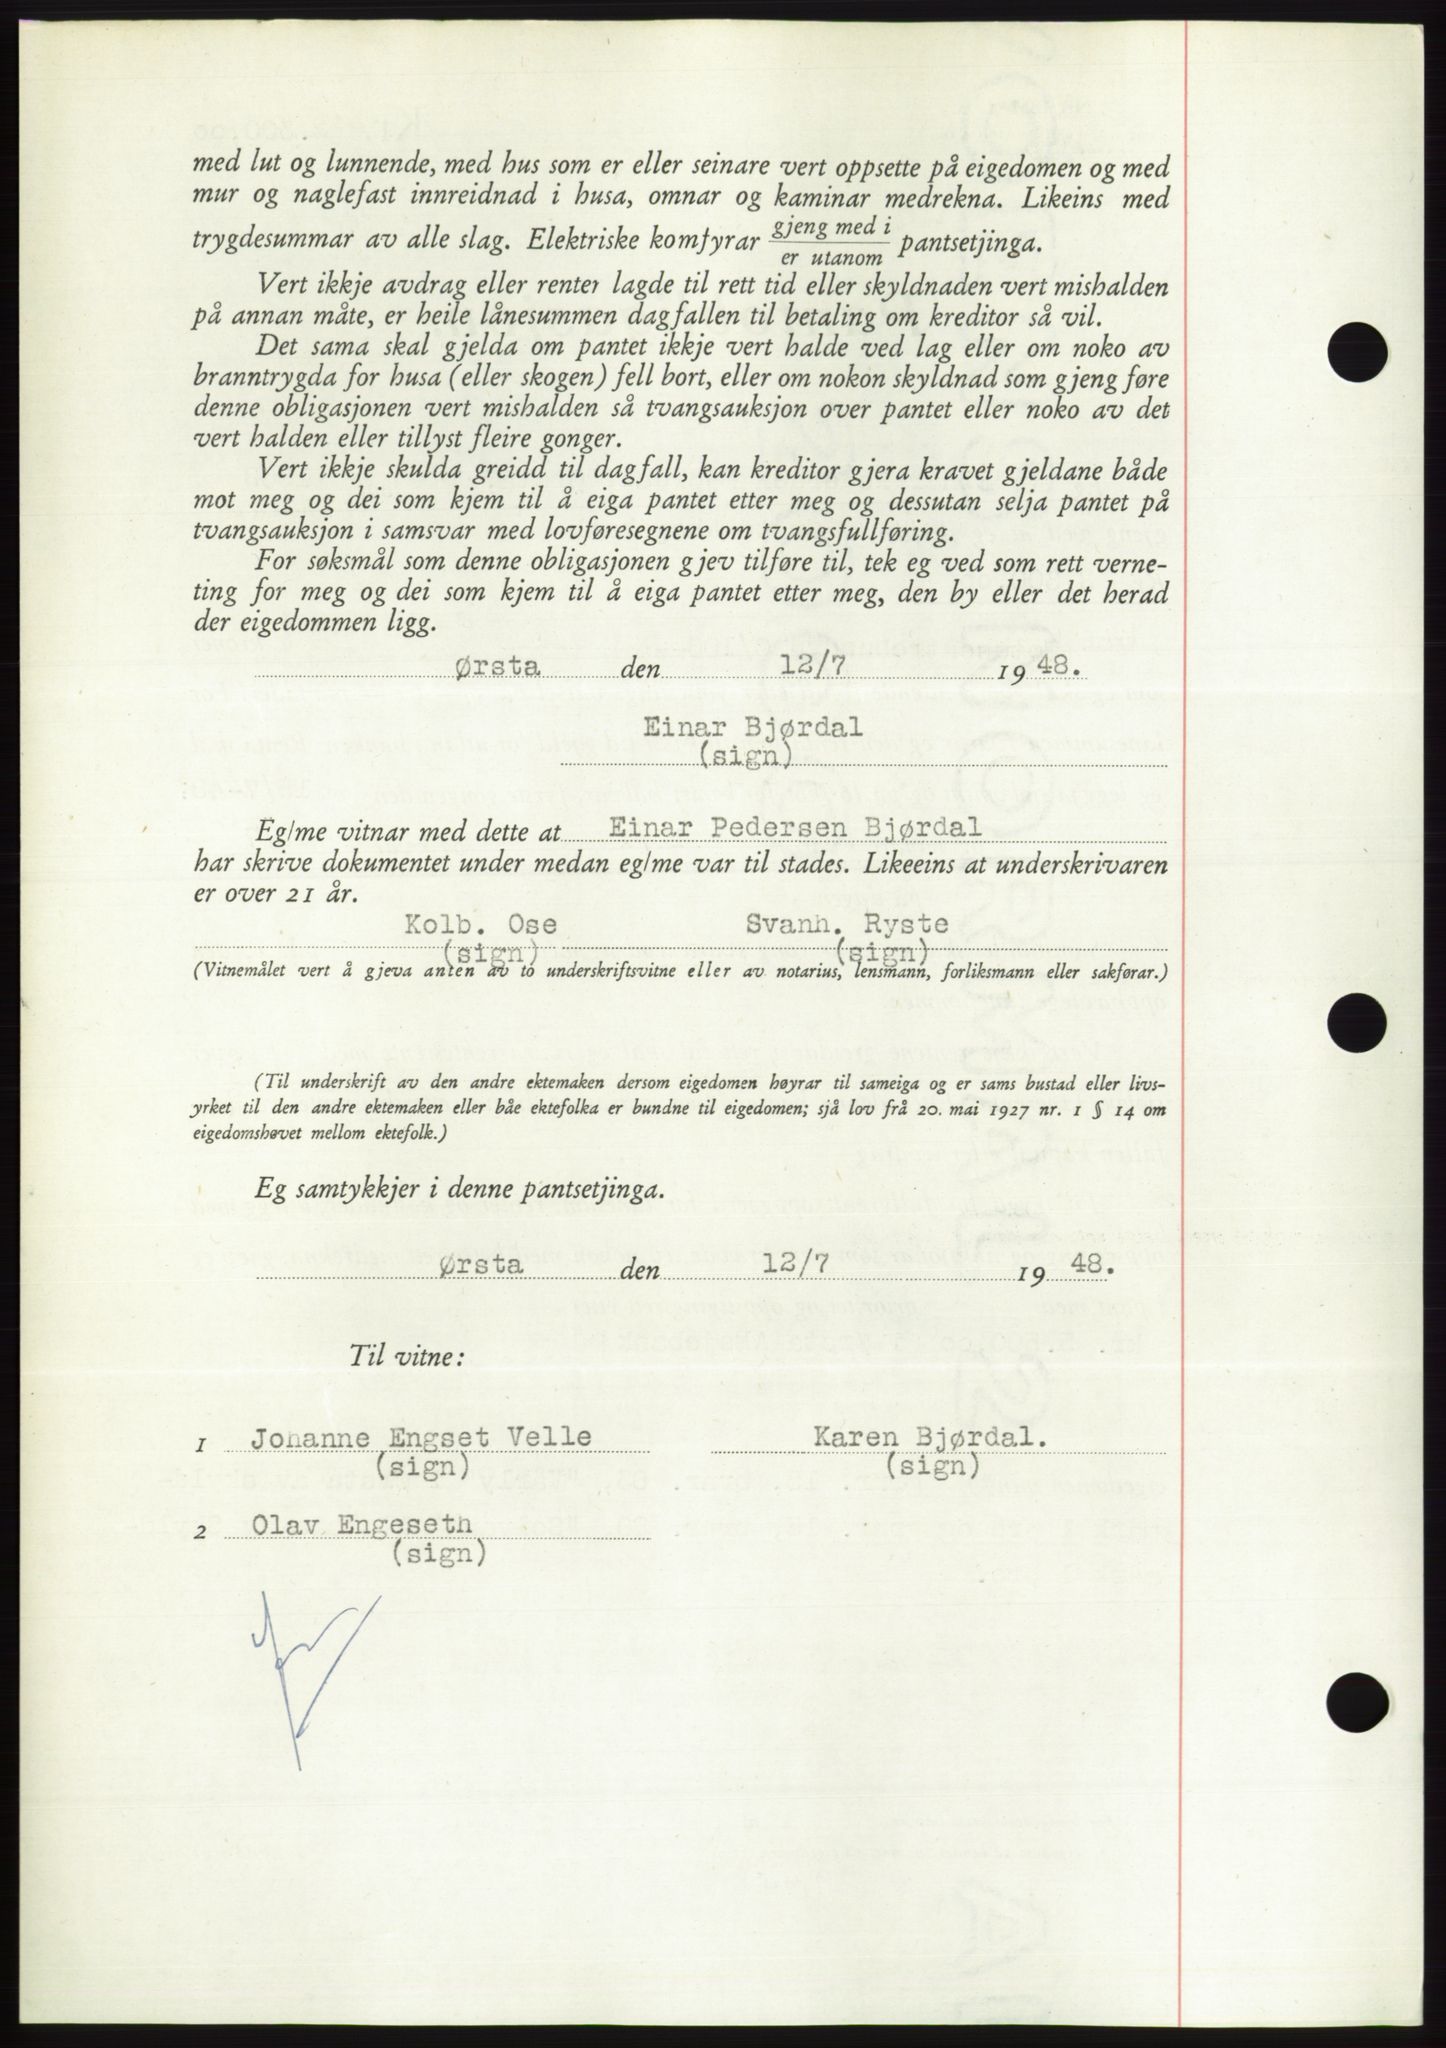 med lut og lunnende, med hus som er eller seinare vert oppsette på eigedomen og med
mur og naglefast innreidnad i husa, omnar og kaminar medrekna. Likeins med
trygdesummar av alle slag. Elektriske komfyrar gjeng med i / er utanom pantsetjinga.
Vert ikkje avdrag eller renter lagde til rett tid eller skyldnaden vert mishalden
på annan måte, er heile lånesummen dagfallen til betaling om kreditor så vil.
Det sama skal gjelda om pantet ikkje vert halde ved lag eller om noko av
branntrygda for husa (eller skogen) fell bort, eller om nokon skyldnad som gjeng føre
denne obligasjonen vert mishalden så tvangsauksjon over pantet eller noko av det
vert halden eller tillyst fleire gonger.
Vert ikkje skulda greidd til dagfall, kan kreditor gjera kravet gjeldane både
mot meg og dei som kjem til å eiga pantet etter meg og dessutan selja pantet på
tvangsauksjon i samsvar med lovføresegnene om tvangsfullføring.
For søksmål som denne obligasjonen gjev tilføre til, tek eg ved som rett verne-
ting for meg og dei som kjem til å eiga pantet etter meg, den by eller det herad
der eigedommen ligg.
Ørsta den 12/7 1948.
Einar Bjørdal
(sign)
Eg/me vitnar med dette at Einar Pedersen Bjørdal
har skrive dokumentet under medan eg/me var til stades. Likeeins at underskrivaren
er over 21 år.
Kolb. Ose Svanh. Ryste
(sign) (sign)
(Vitnemålet vert å gjeva anten av to underskriftsvitne eller av notarius, lensmann, forliksmann eller sakførar.)
(Til underskrift av den andre ektemaken dersom eigedomen høyrar til sameiga og er sams bustad eller livs-
yrket til den andre ektemaken eller båe ektefolka er bundne til eigedomen; sjå lov frå 20. mai 1927 nr. 1 § 14 om
eigedomshøvet mellom ektefolk.)
Eg samtykkjer i denne pantsetjinga.
Ørsta den 12/7 1948.
Til vitne:
1 Johanne Engset Velle Karen Bjørdal.
(sign) (sign)
2 Olav Engeseth
(sign)